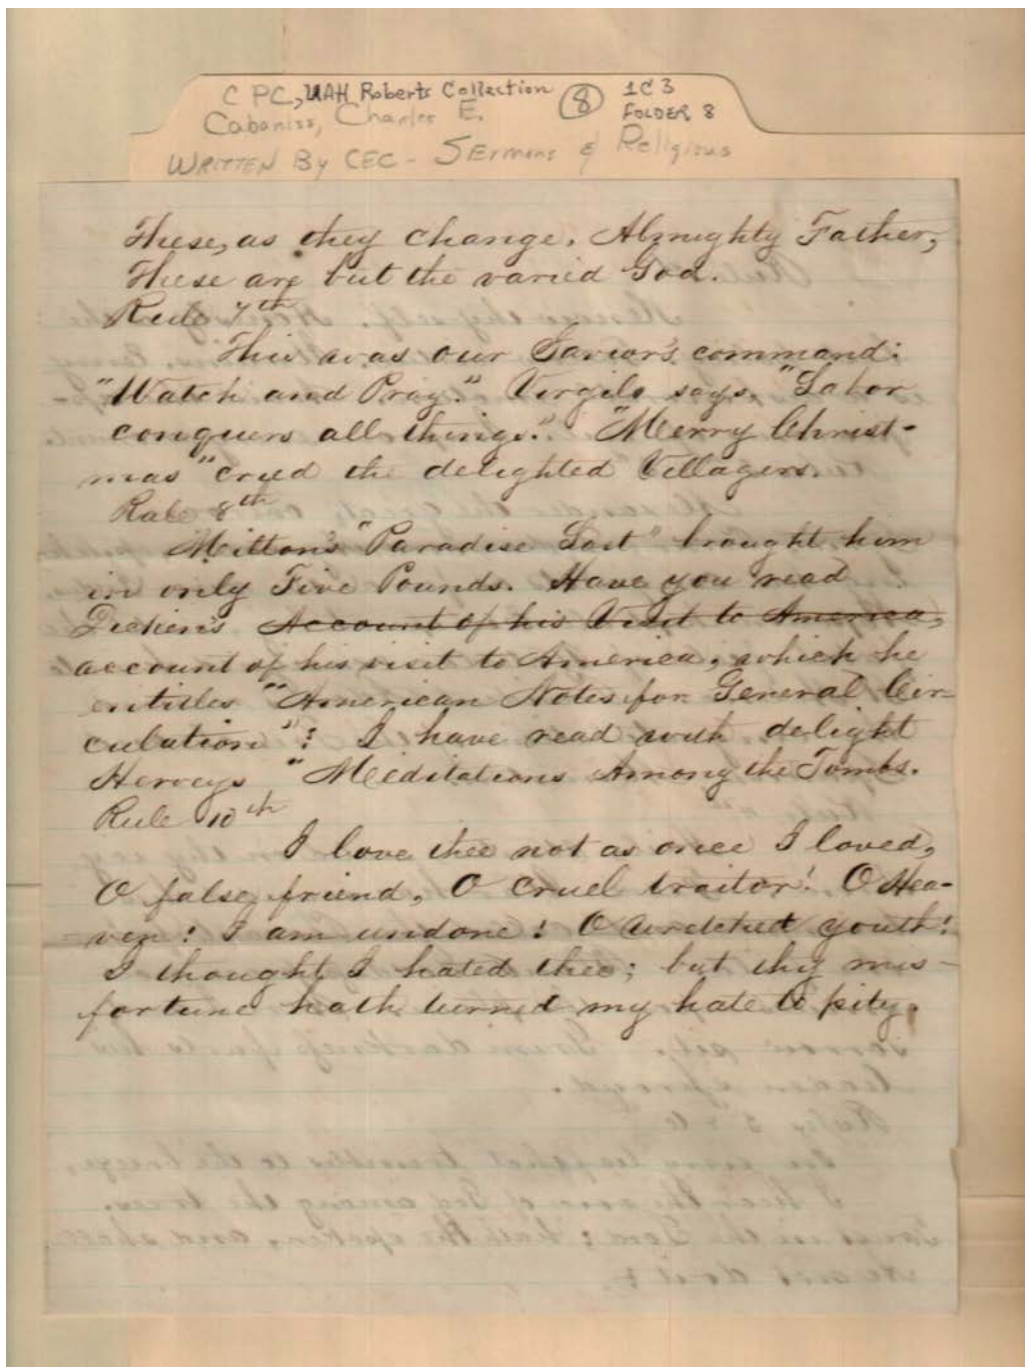 C PC, UAH Roberts Collection 8 1C3
Cabaniss, Charles E. FOLDER 8
WRITTEN By CEC - SErmons & Religious
These, as they change, Almighty Father,
These are but the varied God.
Rule 7th
This was our Savior's command:
"Watch and Pray." Virgils says, "Labor
conquers all things." "Merry Christ-
mas" cried the delighted Villagers.
Rule 8th
Milton's "Paradise Lost" brought him
in only Five Pounds. Have you read
Dicken's Account of his Visit to America,
account of his visit to America, which he
entitles "American Notes for General Cir-
culation"? I have read with delight
Herveys "Meditations Among the Tombs.
Rule 10th
I love thee not as once I loved,
O false friend, O cruel traitor! O Hea-
ven! I am undone! O wretched youth!
I thought I hated thee; but thy mis-
fortune hath turned my hate to pity.